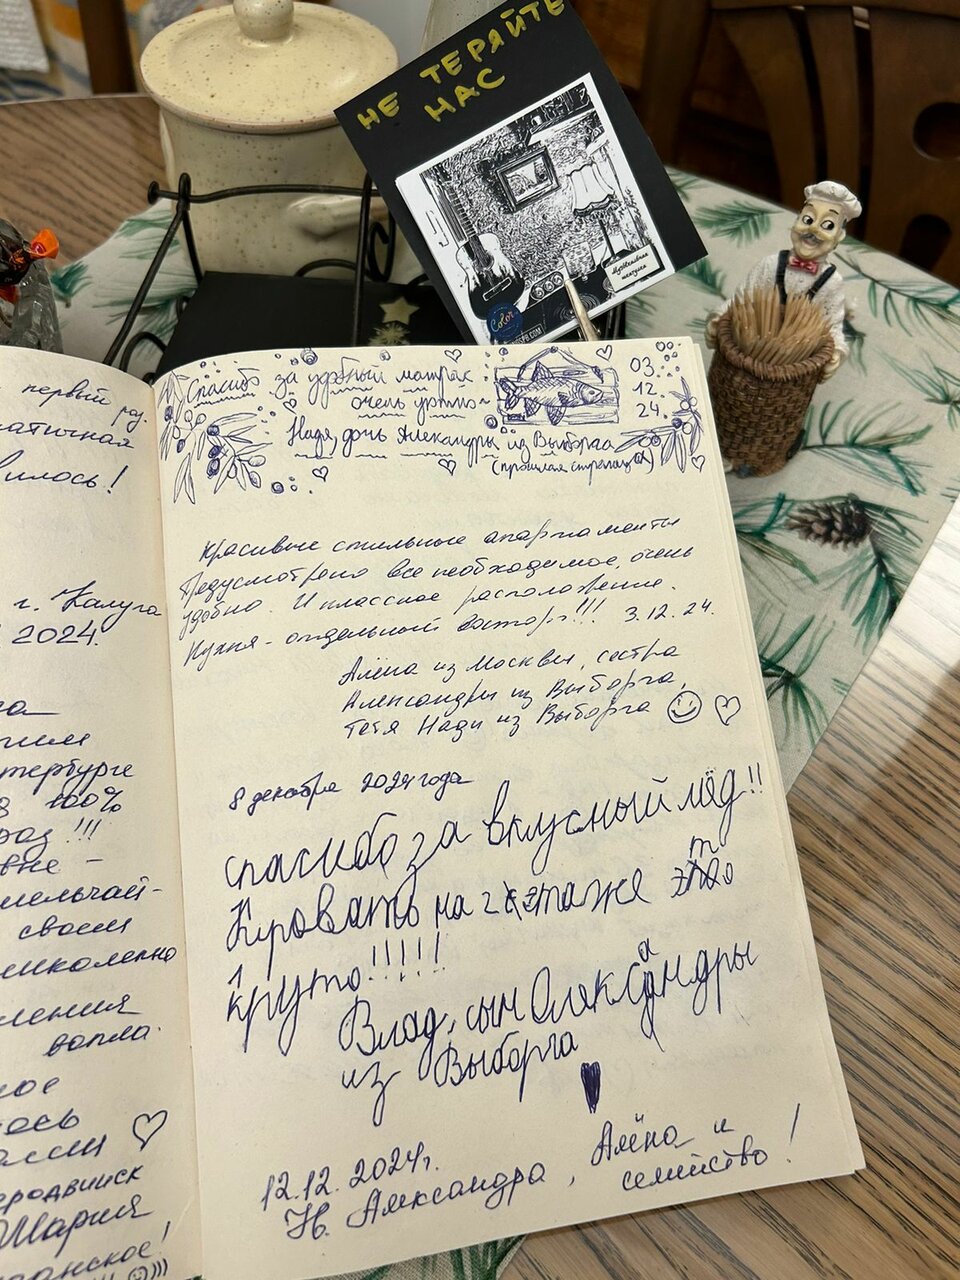 НЕ ТЕРЯЙТЕ
НАС
Музыкальная
шкатулка
Color
первый раз.
атичная
вилось!
г. Калуга
2024.
тербурге
100%
раз!!!
вне -
мельчай-
своей
иколепно
ления
вопла.
ное
лось
еродвинск
Мария
Спасибо за удобный матрас
очень уютно~
03
12
24
Надя, дочь Александры из Выборга
(прошлая страница)
Красивые стильные апартаменты
Педусмотрено все необходимое, очень
удобно. И классное расположение.
Кухня - отдельный восторг!!! 3.12.24.
Алёна из Москвы, сестра
Александры из Выборга,
тётя Нади из Выборга
8 декабря 2024 года
спасибо за вкусный мёд!!
Кровать на 2 этаже это
круто!!!!!
Влад, сын Александры
из Выборга
12.12.2024г.
Александра, Алёна и
семейство!